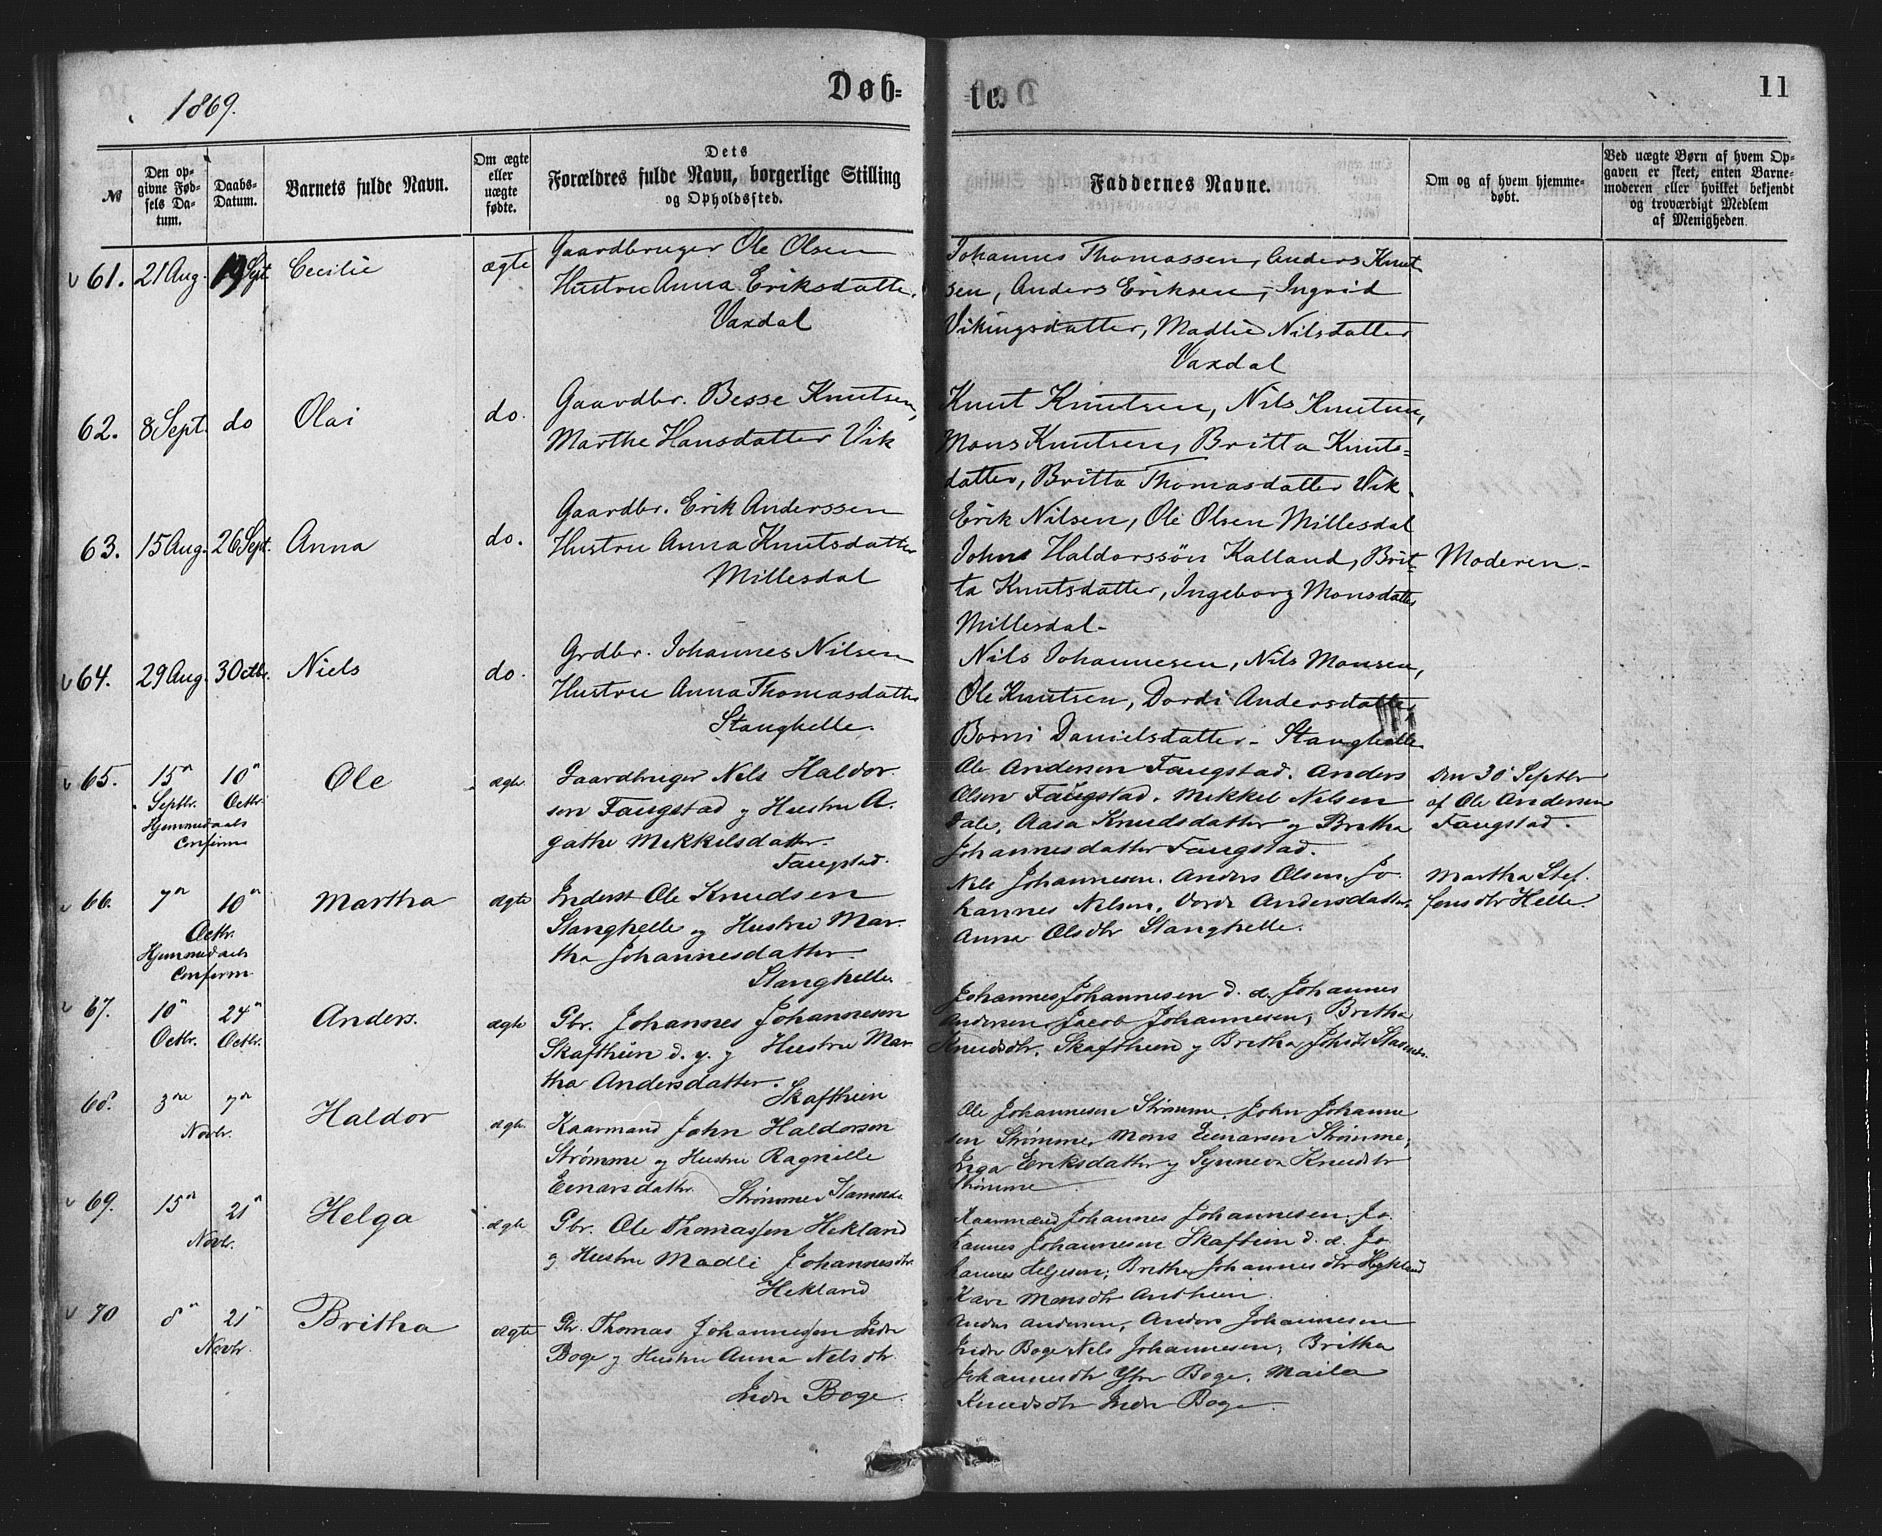 1869.
Døb=
te.
11
№
Den op-
givne Fød-
sels Da-
tum.
Daabs-
Datum.
Barnets fulde Navn.
Om ægte
eller
uægte
fødte.
Dets
Forældres fulde Navn, borgerlige Stilling
og Opholdssted.
Faddernes Navne.
Om og af hvem hjemme-
døbt.
Ved uægte Børn af hvem Op-
gaven er skeet, enten Barne-
moderen eller hvilket bekjendt
og troværdigt Medlem
af Menigheden.
61. 21 Aug. 19 Sept. Cecilie ægte
Gaardbruger Ole Olsen
Hustru Anna Eriksdatter,
Vaxdal
Johannes Thomassen, Anders Knut
sen, Anders Eriksen, Ingrid
Vikingsdatter, Madlie Nilsdatter
Vaxdal
62. 8 Sept. do Olai do.
Gaardbr. Besse Knutsen,
Marthe Hansdatter Vik
Knut Knutsen, Nils Knutsen,
Mons Knutsen, Britta Knuts=
datter, Britta Thomasdatter Vik.
63. 15 Aug. 26 Sept. Anna do.
Gaardbr. Erik Anderssen
Hustru Anna Knutsdatter
Millesdal
Erik Nilsen, Ole Olsen Millesdal
John Haldorssøn Kalland, Brit-
ta Knutsdatter, Ingeborg Monsdatter
Millesdal-
Moderen-
64. 29 Aug. 3 Octbr. Niels do.
Grdbr. Johannes Nilsen
Hustru Anna Thomasdatter
Stanghelle.
Nils Johannesen, Nils Monsen,
Ole Knutsen, Dordi Andersdatter
Borni Danielsdatter- Stanghelle
65. 15n Septbr. 10n Octbr. Ole ægte
Hjemmedaab
Confirm
Gaardbruger Nels Haldor
sen Faugstad og Hustru A.
gathe Mekkelsdatter.
Faugstad.
Ole Andersen Faugstad. Anders
Olsen Faugstad. Mekkel Nilsen
Dale, Aasa Knudsdatter og Britha
Johannesdatter Faugstad.
Den 30 Septbr
af Ole Andersen
Faugstad.
66. 7n 10n Octbr. Martha ægte
Hjemmedaab
Confirm
Inderst Ole Knudsen
Stanghelle og Hustru Mar.
tha Johannesdatter.
Stanghelle
Nels Johannesen. Anders Olsen. Jo
hannes Nelsen. Dorde Andersdatter.
Anna Olsdtr Stanghelle.
Martha Stef.
fensdtr Helle
67. 10n Octbr. 24n Octbr. Anders. ægte
Gbr. Johannes Johannesen
Skafthein d. y. og Hustru Mar
tha Andersdatter.
Skafthein
Johannes Johannesen d. æ. Johannes
Andersen, Jacob Johannesen, Britha
Knudsdtr. Skafthein og Britha Johsdtr
68. 3die 7n Novbr. Haldor ægte
Kaarmand John Haldorsen
Strømme og Hustru Ragnille
Einarsdatter. Strømme
Ole Johannesen Strømme, John Johanne
sen Strømme, Mons Einarsen Strømme,
Inga Eriksdatter og Synneva Knudsdtr
Strømme
69. 15n 21n Novbr. Helga ægte
Gbr. Ole Thomassen Hekland
og Hustru Madli Johannesdtr
Hekland
Kaarmand Johannes Johannesen. Jo
hannes Johannesen Skafthein d. æ. Jo
hannes Helgesen, Britha Johannesdtr
Kari Monsdtr
70 8n 21n Novbr. Britha ægte
Gbr. Thomas Johannessen Indr
Boge og Hustru Anna Nelsdtr.
Indr Boge.
Anders Andersen, Anders Johannesen
Indr Boge Nels Johannesen, Britha
Johannesdtr Ytr Boge. Maila
Knudsdtr Indr Boge